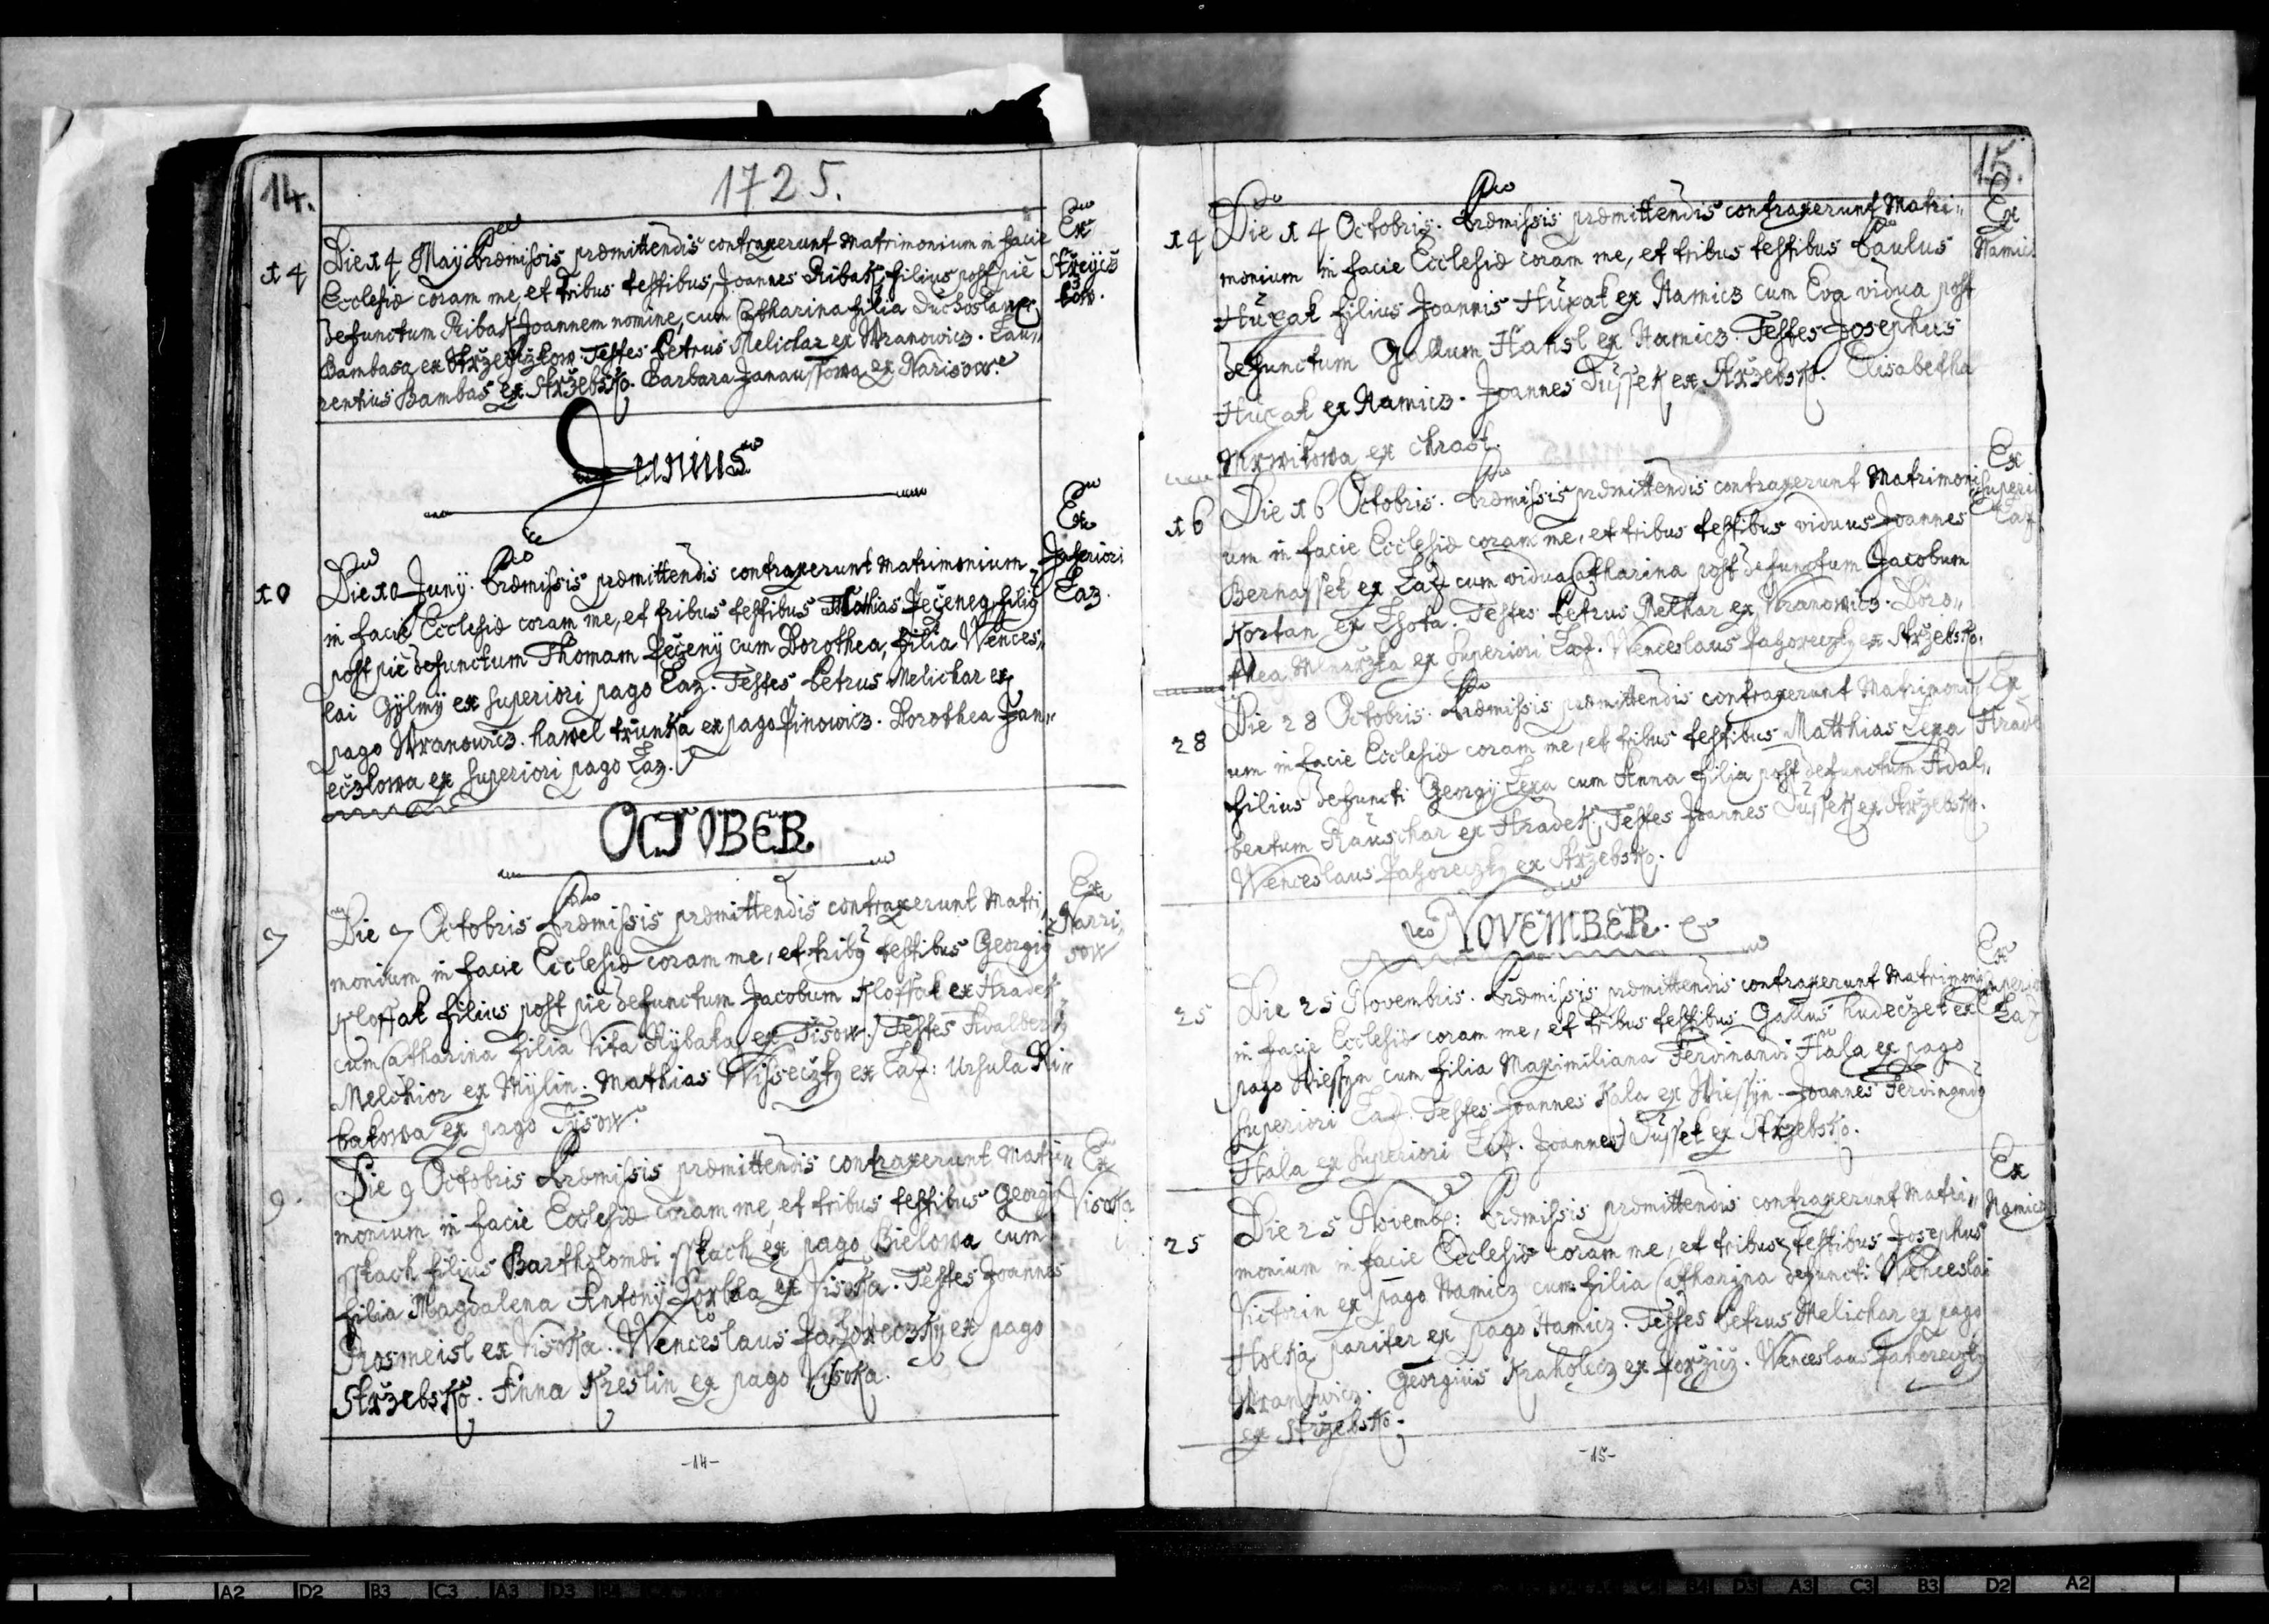 14.
1725.
14
Die 14 Maÿ Præmissis præmittendis contraxerunt Matrimonium in facie
Ecclesiæ coram me, et tribus testibus, Joannes Ribak, filius post piè
defunctum Ribak Joannem nomine, cum Catharina filia
Bambasa ex Testes Petrus Melichar ex Wranowicz. Lau„
rentius Bambas ex Strzebsko. Barbara ex Narisow.
Ex
Junius
10
Die 10 Junÿ. Præmissis præmittendis contraxerunt Matrimonium
in facie Ecclesiæ coram me, et tribus testibus Mathias
post piè defunctum Thomam cum Dorothea, filia Wences„
lai ex superiori pago Laz. Testes Petrus Melichar ex
pago Wranowicz. Hawel trunka ex pago Pinowicz. Dorothea Jan„
eczkowa ex superiori pago Laz.
Ex
Inferiori
Laz.
OCTOBER
7
Die 7 Octobris Præmissis præmittendis contraxerunt Matri„
monium in facie Ecclesiæ coram me, et tribq testibus Georgiq
filius post piè defunctum Jacobum ex Hradek
cum Catharina filia Vita Rÿbaka ex Tisow. Testes Adalbertq
Melchior ex Mÿlin. Mathias ex Laz: Ursula Ri„
bakowa ex pago Tÿsow.
Ex
Narri„
sow
9.
Die 9 Octobris Præmissis præmittendis contraxerunt Matri„
monium in facie Ecclesiæ coram me, et tribus testibus Georgiq
sskach filius Bartholomæi sskach ex pago Bielowa cum
filia Magdalena Antonÿ ex Visoka. Testes Joannes
Prosmeisl ex Visoka. Wenceslaus ex pago
Strzebsko. Anna Kreslin ex pago Visoka.
Ex
Visoka
-14-
15.
14
Die 14 Octobris. Præmissis præmittendis contraxerunt Matri„
monium in facie Ecclesiæ coram me, et tribus testibus Paulus
Huxak filius Joannis Huxak ex Namicz cum Eva vidua post
defunctum Gallum Hansl ex Namicz. Testes Josephus
Huxak ex Namicz. Joannes Tussek ex Strzebsko. Elisabetha
ex Chrast.
Ex
16
Die 16 Octobris. Præmissis præmittendis contraxerunt Matrimoni„
um in facie Ecclesiæ coram me, et tribus testibus viduus Joannes
Bernassek ex Laz cum vidua Catharina post defunctum Jacobum
Kortan ex Lhota. Testes Petrus Melhar ex Wranowicz. Doro„
thea ex Superiori Laz. Wenceslaus ex Strzebsko.
Ex
Laz
28
Die 28 Octobris. Præmissis præmittendis contraxerunt Matrimoni„
um in facie Ecclesiæ coram me, et tribus testibus Matthias Lexa
filius defuncti Georgÿ Lexa cum Anna filia post defunctum Adal„
bertum Rauschar ex Hradek. Testes Joannes Tussek ex Strzebsko.
Wenceslaus ex Strzebsko.
Ex
NOVEMBER.
25
Die 25 Novembris. Præmissis præmittendis contraxerunt Matrimoni„
in facie Ecclesiæ coram me, et tribus testibus Gallus Hudeczek ex
pago cum filia Maximiliana Ferdinandi Hala ex pago
superiori Laz. Testes Joannes Kala ex Joannes
Hala ex superiori Laz. Joannes Tussek ex Strzebsko.
Ex
Laz
25
Die 25 Novemb: Præmissis præmittendis contraxerunt Matri„
monium in facie Ecclesiæ coram me, et tribus testibus Josephus
Victorin ex pago Namicz cum filia Catharina defuncti Wenceslai
Holka, pariter ex pago Namicz. Testes Petrus Melichar ex pago
Wranowicz. Georgius ex Wenceslaus
ex Strzebsko.
Ex
Namicz
-15-